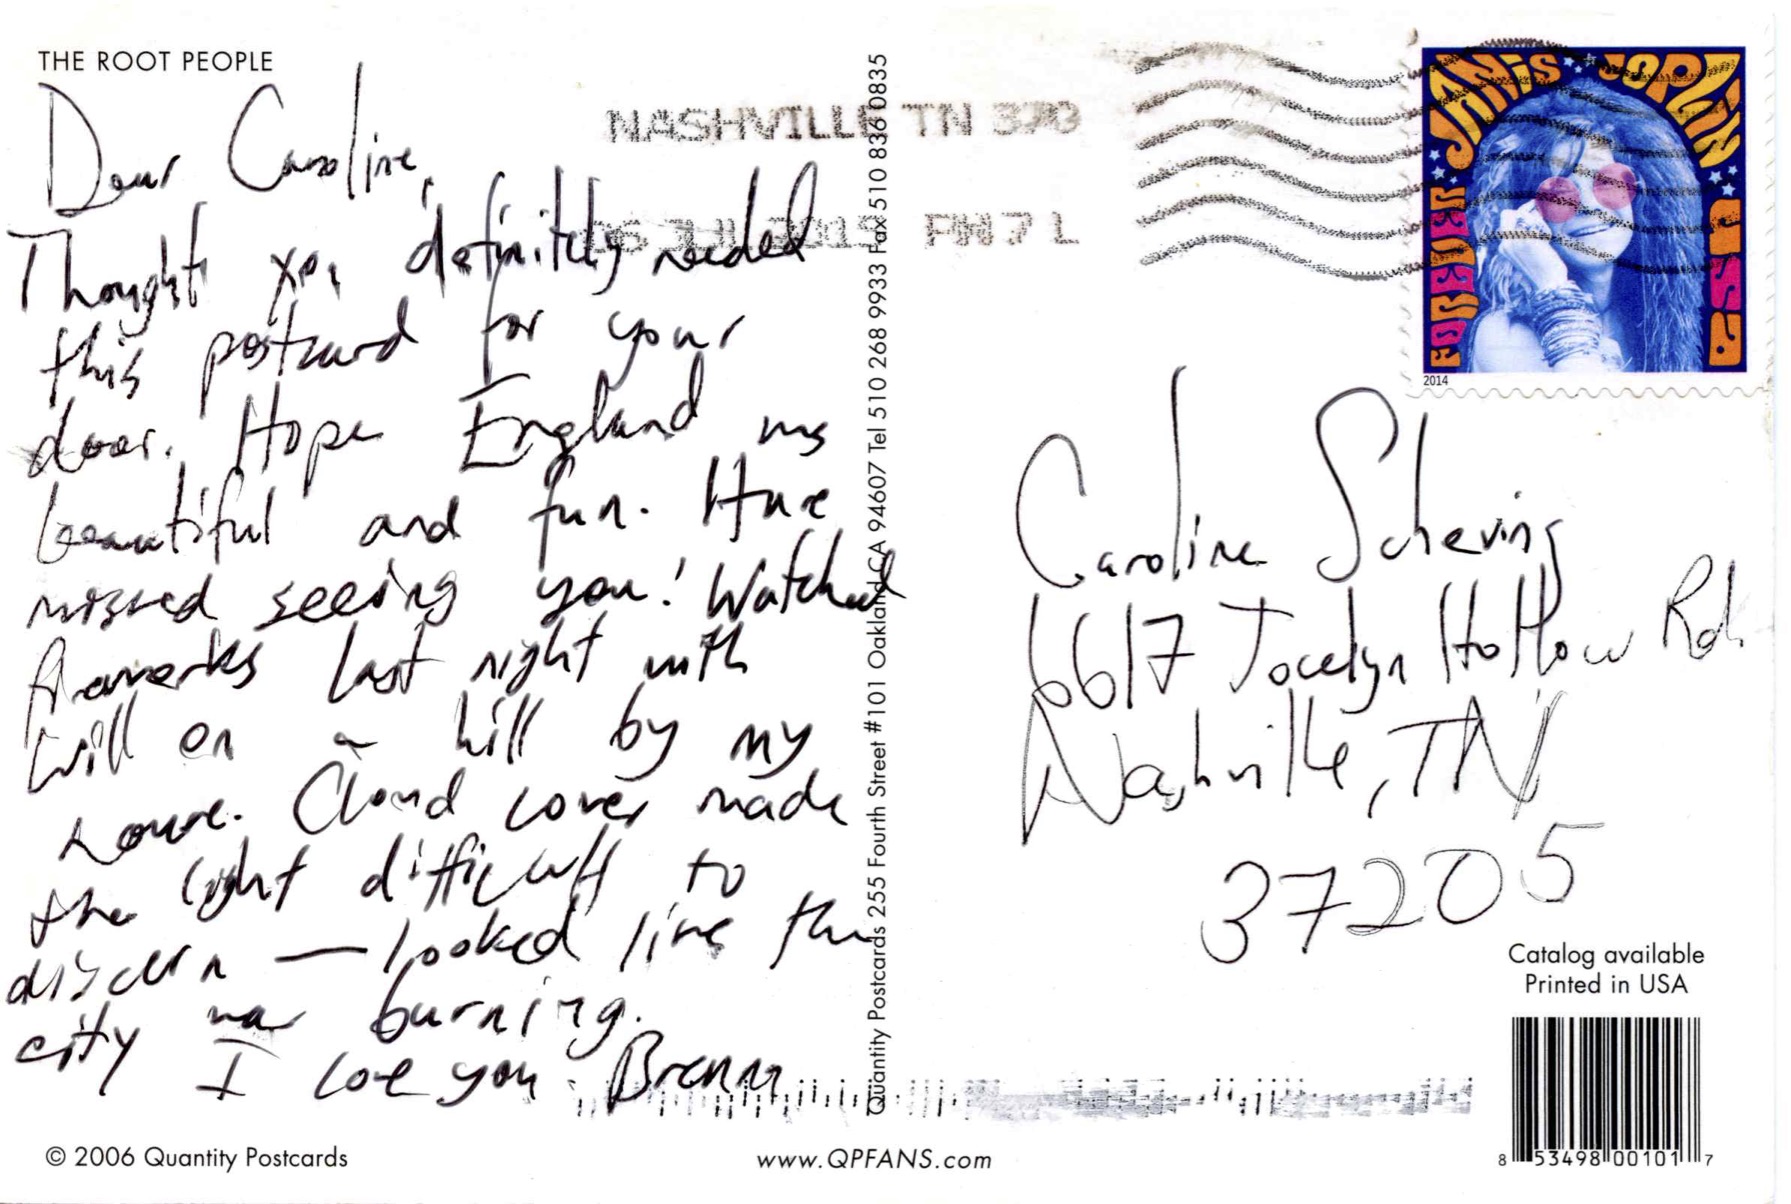 THE ROOT PEOPLE
Dear Caroline,
Thought you definitely needed
this postcard for your
door. Hope England was
beautiful and fun. Have
missed seeing you! Watched
fireworks last night with
Will on a hill by my
house. Cloud cover made
the light difficult to
discern — looked like the
city was burning.
I love you Brenna
© 2006 Quantity Postcards
www.QPFANS.com
Quantity Postcards 255 Fourth Street #101 Oakland CA 94607 Tel 510 268 9933 Fax 510 836 0835
NASHVILLE TN 370
JUL 2015 PM 7 L
JANIS JOPLIN
FOREVER USA
2014
Caroline Scheving
6617 Jocelyn Hollow Rd.
Nashville, TN
37205
Catalog available
Printed in USA
8 53498 00101 7